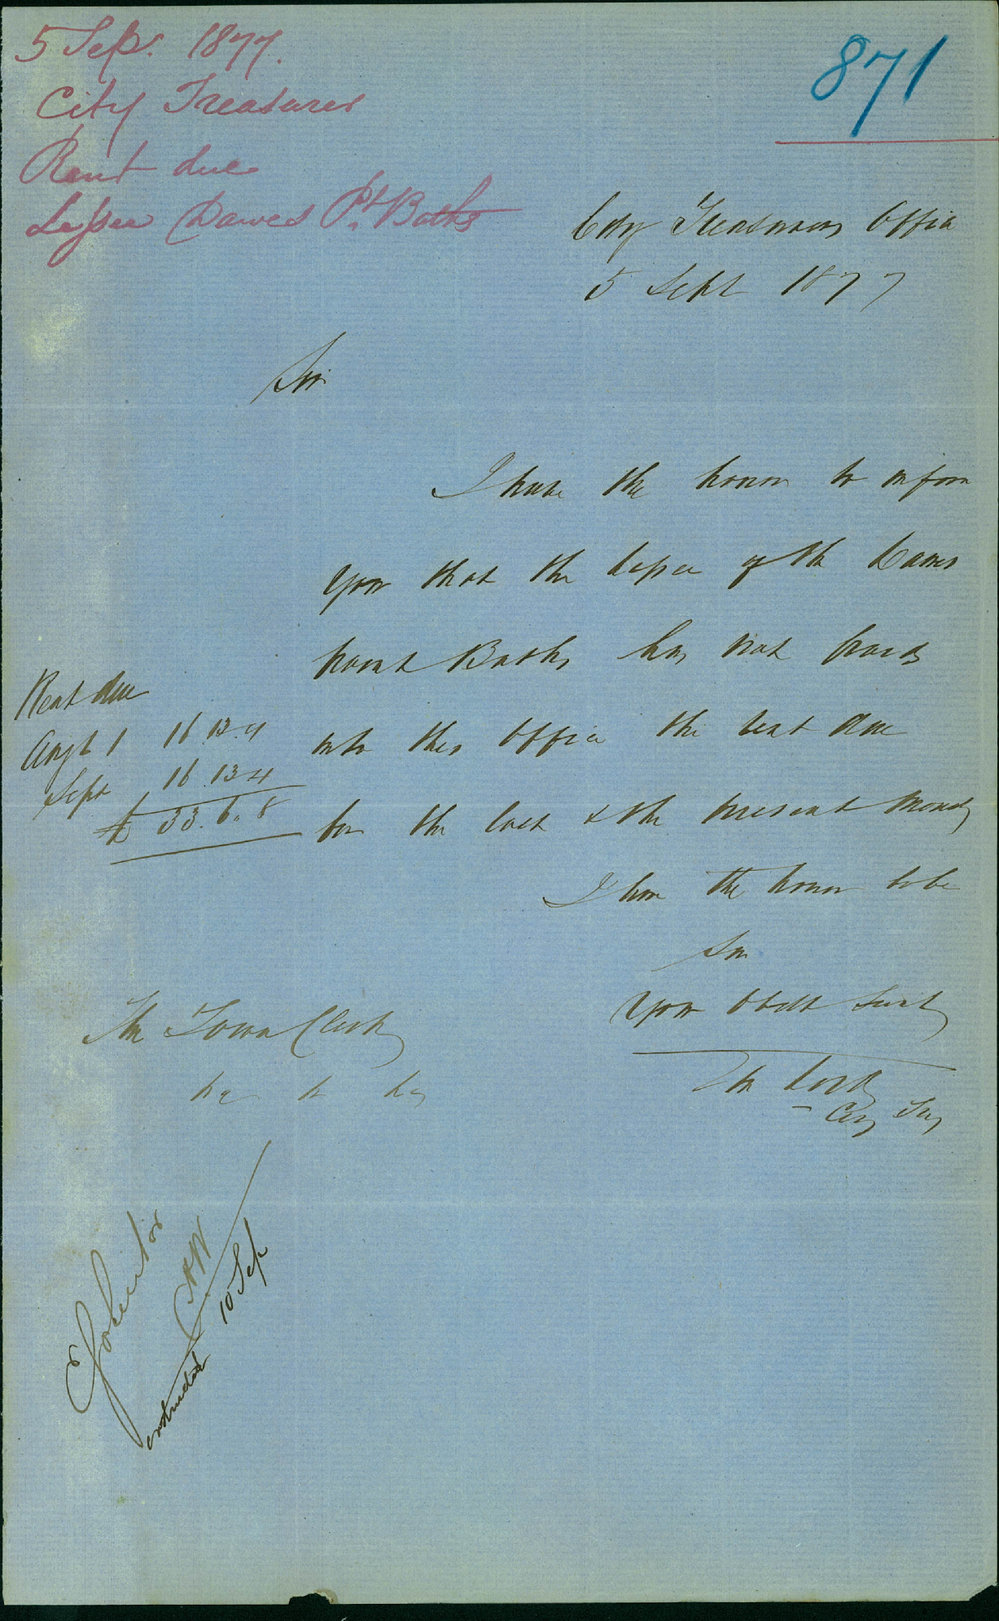 5 Sep. 1877.
City Treasurer
Rent due
Lessee Dawes Pt. Baths
871
City Treasurers Office
5 Sept 1877
Sir
I have the honor to inform
you that the lessee of the Dawes
point Baths has not paid
into this Office the rent due
for the last & the present Month
Rent due
Augt 1 16.13.4
Sept 16.13.4
£ 33.6.8
I have the honor to be
Sir
Your Obedt Servt
City Trs
The Town Clerk
&c &c &c
Solicitor
instructed 10 Sep